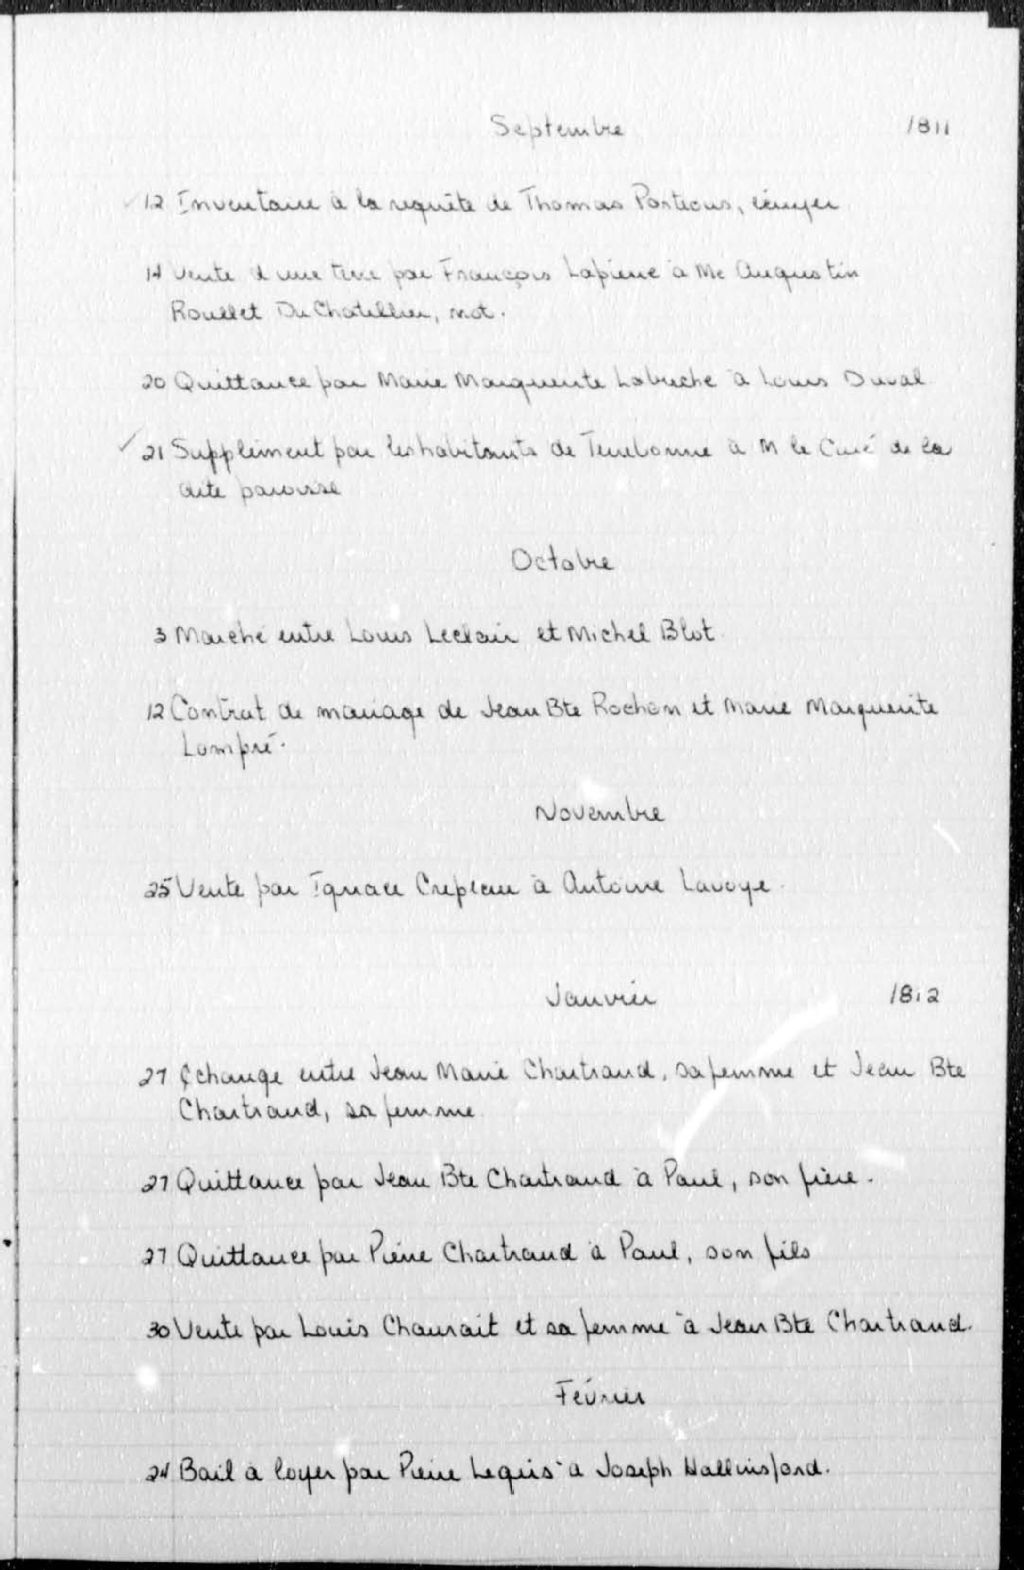 Septembre 1811
12 Inventaire à la requête de Thomas Porteous, écuyer
14 Vente d'une terre par François Lapierre à Me Augustin
Roullet DuChatellier, not.
20 Quittance par Marie Marguerite Labreche à Louis Duval
21 Supplément par les habitants de Terrebonne à M le Curé de la
dite paroisse
Octobre
3 Marché entre Louis Leclair et Michel Blot
12 Contrat de mariage de Jean Bte Rochon et Marie Marguerite
Lompré.
Novembre
25 Vente par Ignace Crepeau à Antoine Lavoye.
Janvier 1812
27 Echange entre Jean Marie Chartrand, sa femme et Jean Bte
Chartrand, sa femme
27 Quittance par Jean Bte Chartrand à Paul, son frère.
27 Quittance par Pierre Chartrand à Paul, son fils
30 Vente par Louis et sa femme à Jean Bte Chartrand.
Février
24 Bail à loyer par Pierre Lequis à Joseph